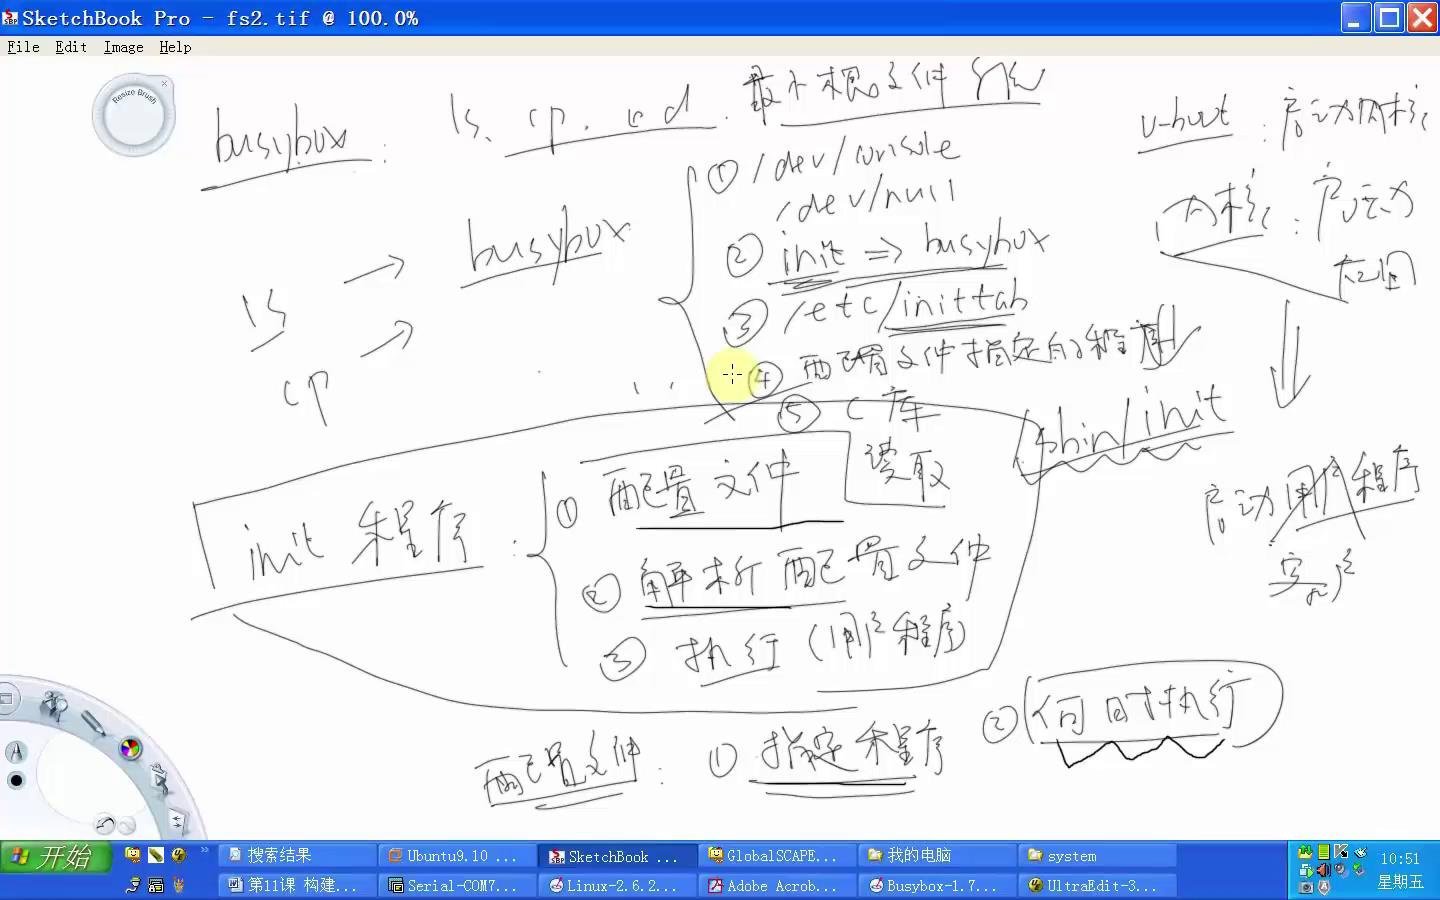 SketchBook Pro - fs2.tif @ 100.0%
File Edit Image Help
Resize Brush
busybox:
ls、cp、cd
最小根文件系统
① /dev/console
/dev/null
② init => busybox
③ /etc/inittab
④ 配置文件指定的程序
⑤ C库
u-boot : 启动内核
内核 : 启动
应用
/sbin/init
启动用户程序
客户
ls → busybox
cp →
init 程序 :
① 配置文件 读取
② 解析配置文件
③ 执行(用户程序)
配置文件 : ① 指定程序 ② 何时执行
开始
搜索结果
Ubuntu9.10 ...
SketchBook ...
GlobalSCAPE...
我的电脑
system
10:51
第11课 构建...
Serial-COM7...
Linux-2.6.2...
Adobe Acrob...
Busybox-1.7...
UltraEdit-3...
星期五